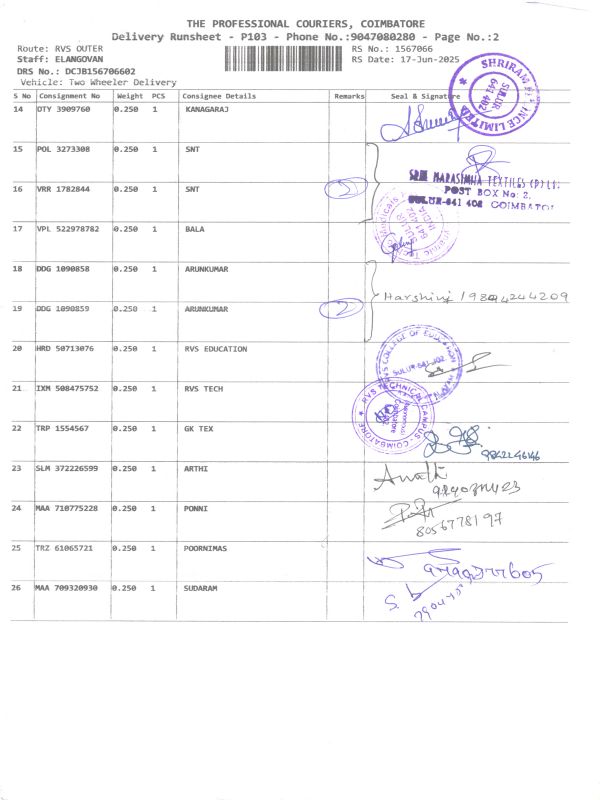 THE PROFESSIONAL COURIERS, COIMBATORE
Delivery Runsheet - P103 - Phone No.:9047080280 - Page No.:2
Route: RVS OUTER RS No.: 1567066
Staff: ELANGOVAN RS Date: 17-Jun-2025
DRS No.: DCJB156706602
Vehicle: Two Wheeler Delivery
S No Consignment No Weight PCS Consignee Details Remarks Seal & Signature
SHRIRAM FINANCE LIMITED
SULUR
641 402
14 OTY 3909760 0.250 1 KANAGARAJ
15 POL 3273308 0.250 1 SNT
16 VRR 1782844 0.250 1 SNT 2
SRM NARASIMHA TEXTILES (P) LT
POST BOX No: 2,
SULUR-641 402 COIMBATO
17 VPL 522978782 0.250 1 BALA
SULUR
641 402
INDIA
18 DDG 1090858 0.250 1 ARUNKUMAR
Harshini
19 DDG 1090859 0.250 1 ARUNKUMAR 2
20 HRD 50713076 0.250 1 RVS EDUCATION
RVS COLLEGE OF EDUCATION
SULUR-641 402
21 IXM 508475752 0.250 1 RVS TECH
RVS TECHNICAL CAMPUS - COIMBATORE
22 TRP 1554567 0.250 1 GK TEX
9842246146
23 SLM 372226599 0.250 1 ARTHI
24 MAA 710775228 0.250 1 PONNI
8056778197
25 TRZ 61065721 0.250 1 POORNIMAS
26 MAA 709320930 0.250 1 SUDARAM